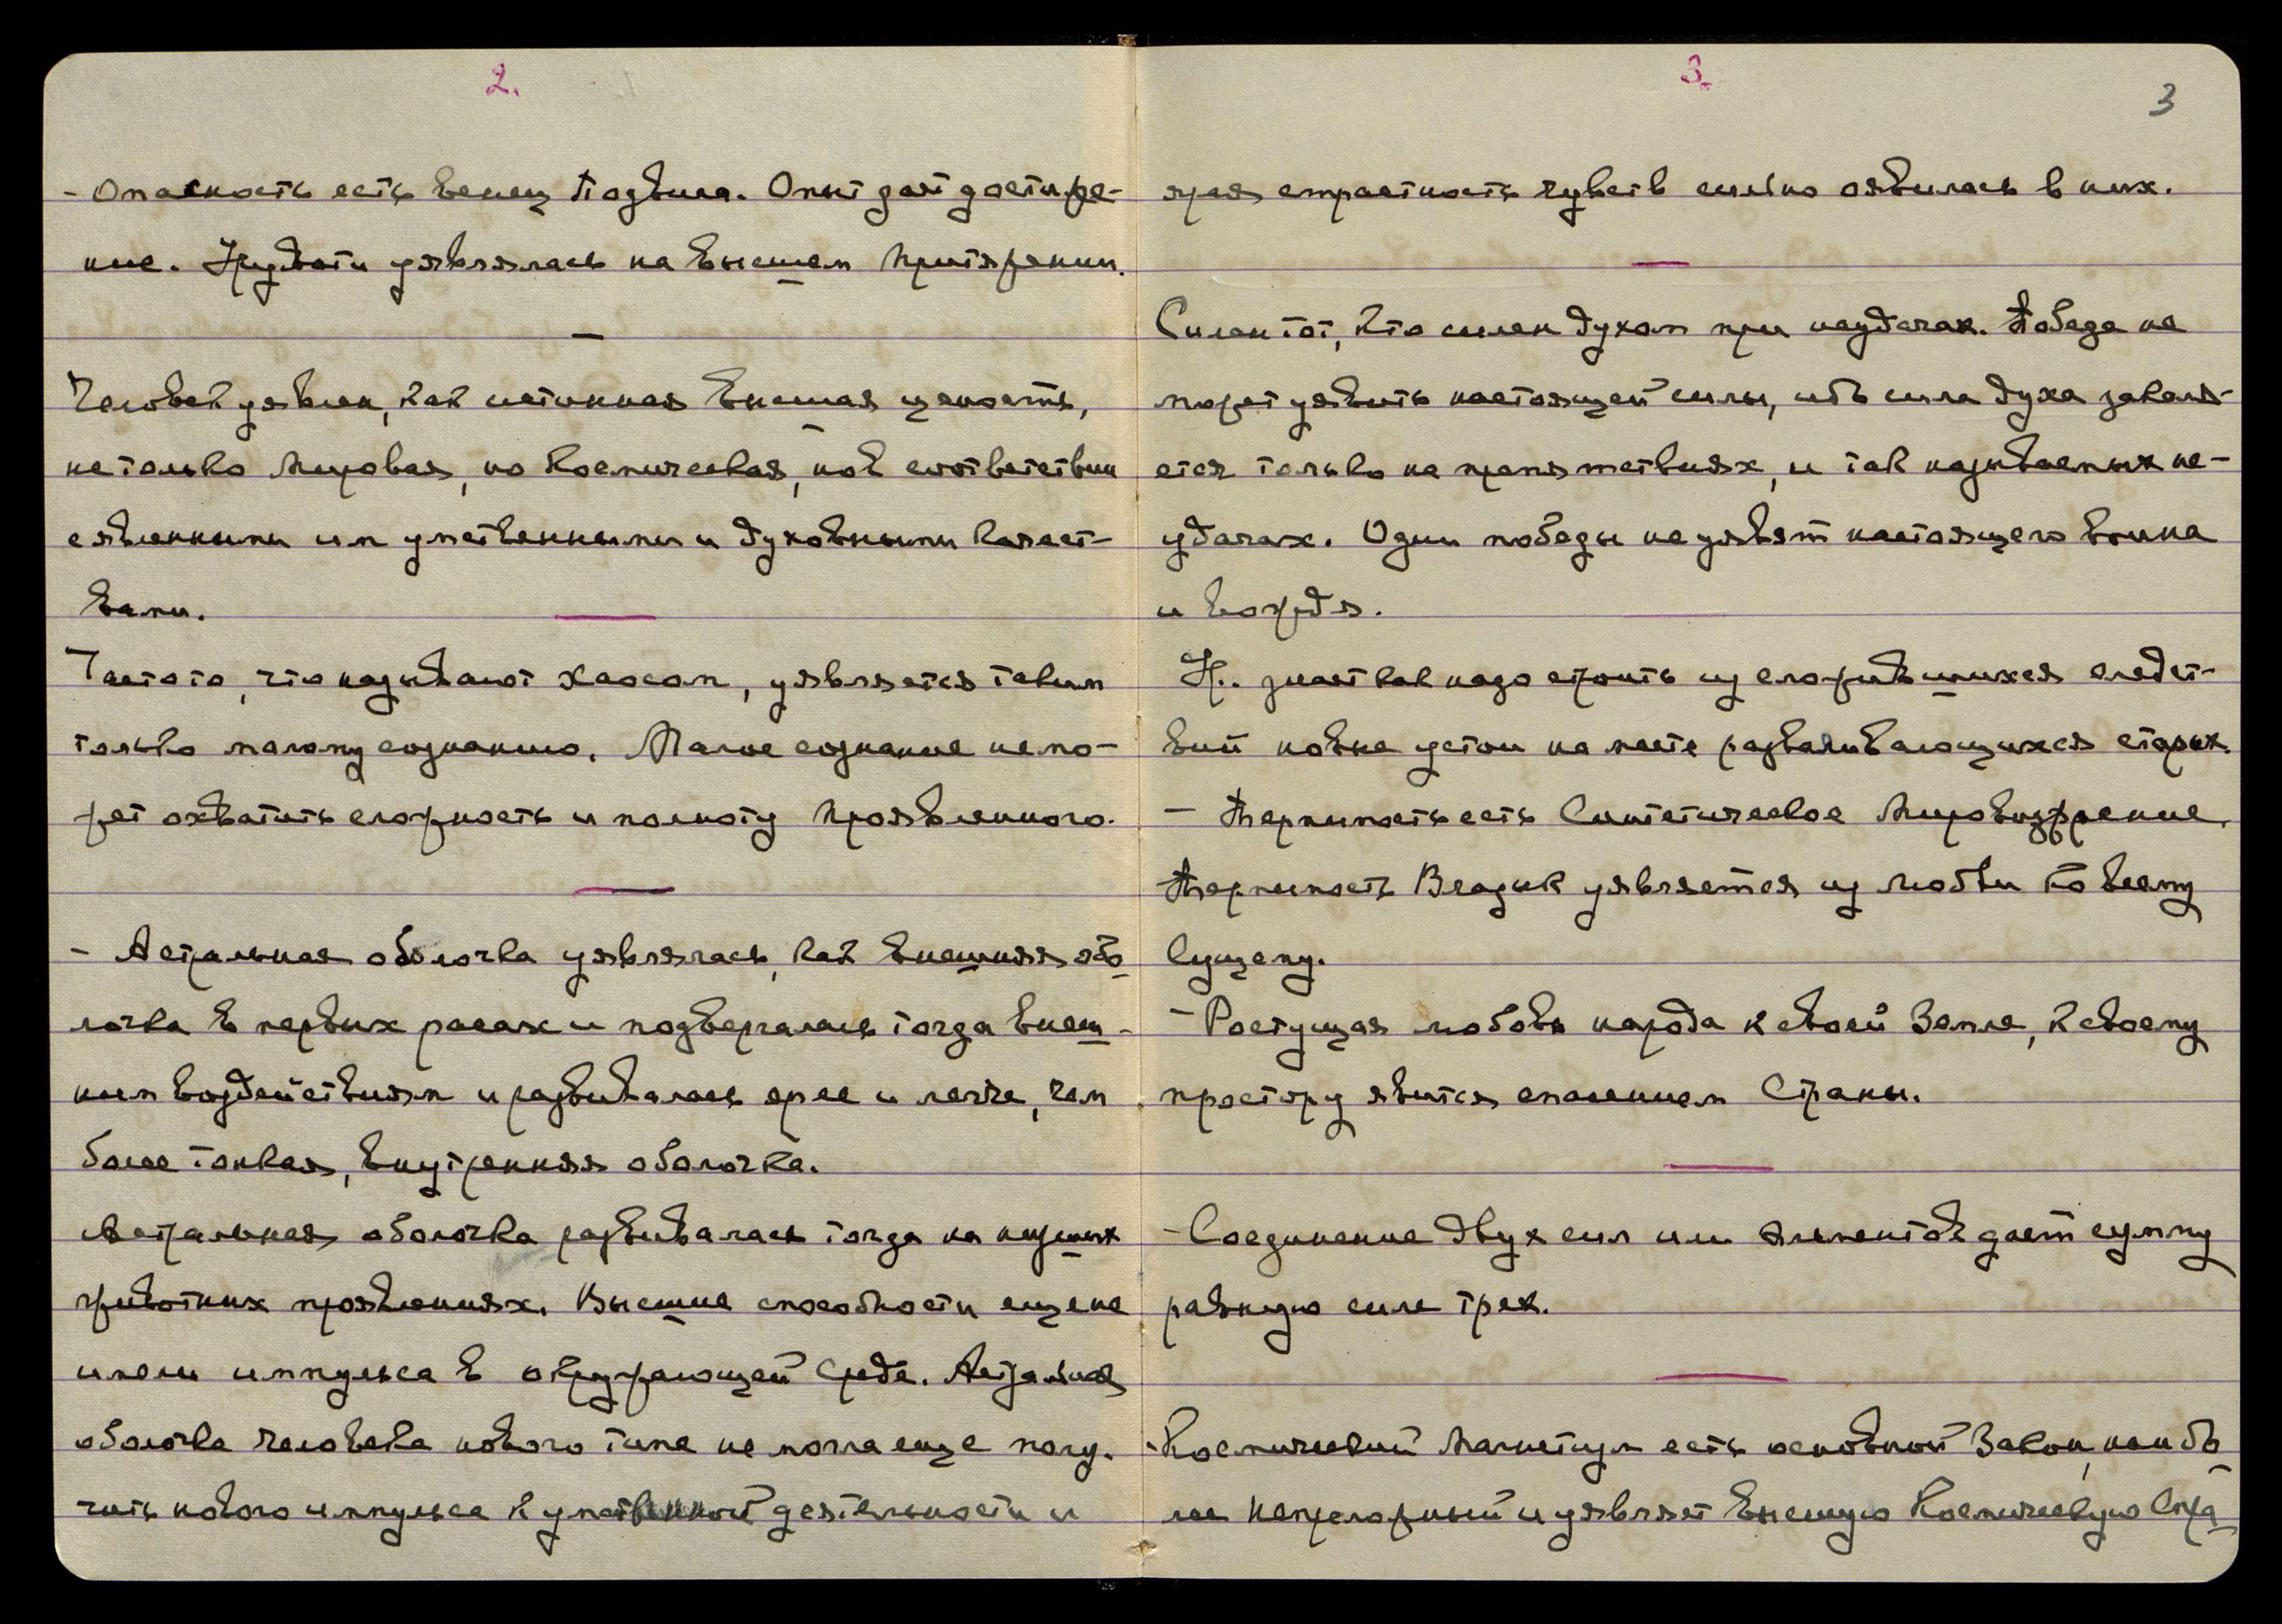 2.
- Опасность есть венец Подвига. Опыт дай достиже-
ние. Урусвати уявлялась на высшем притяжении.
Человек уявлен, как истинная высшая ценность,
не только мировая, но Космическая, но в соответствии
с явленными им умственными и духовными качест-
вами.
Часто то, что называют хаосом, уявляется таким
только малому сознанию. Малое сознание не мо-
жет охватить сложность и полноту проявленного.
- Астральная оболочка уявлялась, как внешняя обо
лочка в первых расах и подвергалась тогда внеш-
ним воздействиям и развивалась ярее и легче, чем
более тонкая, внутренняя оболочка.
Астральная оболочка развивалась тогда на низших
животных проявлениях. Высшие способности еще не
имели импульса в окружающей среде. Астральная
оболочка человека нового типа не могла еще полу-
чить нового импульса к умственной деятельности и
3.
3
ярая страстность чувств сильно оявилась в них.
Силен тот, кто силен духом при неудачах. Победа не
может уявить настоящей силы, ибо сила духа закаля-
ется только на препятствиях, и так называемых не-
удачах. Одни победы не уявят настоящего воина
и вождя.
Ур. знает как надо строить из сложившихся следст-
вий новые устои на месте разваливающихся старых.
- Терпимость есть Синтетическое Мировоззрение.
Терпимость Владык уявляется из любви ко всему
Сущему.
- Растущая любовь народа к своей Земле, к своему
простору явится спасением Страны.
- Соединение двух сил или элементов дает сумму
равную силе трех.
- Космический Магнетизм есть основной Закон, наибо
лее непреложный и уявляет высшую Космическую Спра